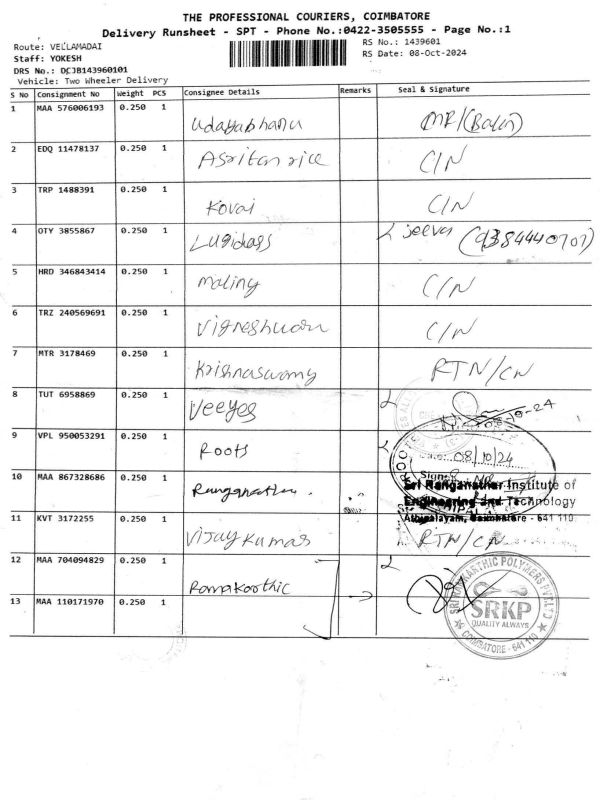 THE PROFESSIONAL COURIERS, COIMBATORE
Delivery Runsheet - SPT - Phone No.:0422-3505555 - Page No.:1
Route: VELLAMADAI
RS No.: 1439601
Staff: YOKESH
RS Date: 08-Oct-2024
DRS No.: DCJB143960101
Vehicle: Two Wheeler Delivery
S No Consignment No Weight PCS Consignee Details Remarks Seal & Signature
1 MAA 576006193 0.250 1 Udayabhanu
2 EDQ 11478137 0.250 1 C/N
3 TRP 1488391 0.250 1 Kovai C/N
4 OTY 3855867 0.250 1 Jeeva (9384440707)
5 HRD 346843414 0.250 1 maliny C/N
6 TRZ 240569691 0.250 1 Vigneshwaran C/N
7 MTR 3178469 0.250 1 Krishnaswamy RTN/CN
8 TUT 6958869 0.250 1 Veeyes
9 VPL 950053291 0.250 1 Roots 08/10/24
10 MAA 867328686 0.250 1 Ranganathan
Sri Ranganathar Institute of
Engineering and Technology
Athipalayam, Coimbatore - 641 110
11 KVT 3172255 0.250 1 Vijay Kumar RTN/CN
12 MAA 704094829 0.250 1 Ramakarthic
13 MAA 110171970 0.250 1
SRI RAMKARTHIC POLYMERS PVT LTD
SRKP
QUALITY ALWAYS
COIMBATORE - 641 110